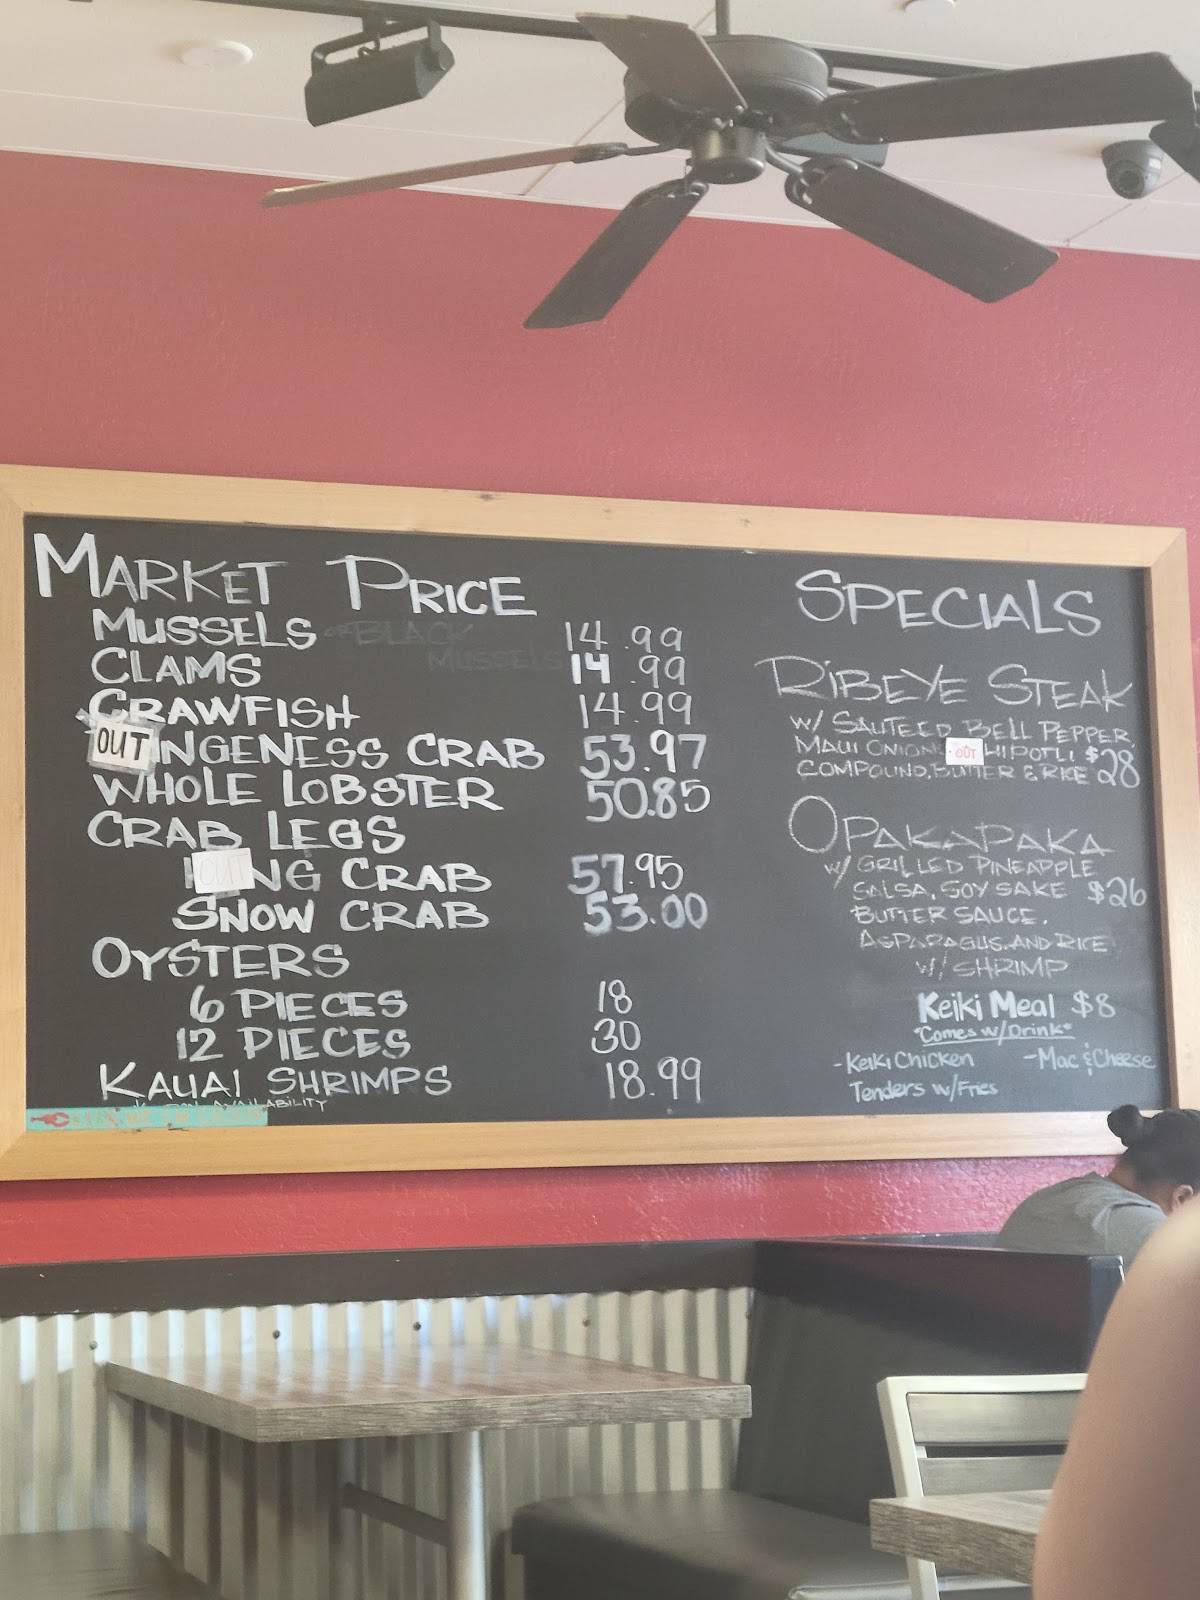 MARKET PRICE
MUSSELS OR BLACK MUSSELS 14.99
CLAMS 14.99
CRAWFISH 14.99
OUT NGENESS CRAB 53.97
WHOLE LOBSTER 50.85
CRAB LEGS
OUT NG CRAB 57.95
SNOW CRAB 53.00
OYSTERS
6 PIECES 18
12 PIECES 30
KAUAI SHRIMPS 18.99
AVAILABILITY
SPECIALS
RIBEYE STEAK
W/ SAUTEED BELL PEPPER
MAUI ONION OUT HIPOTLI $28
COMPOUND, BUTTER & RICE
OPAKAPAKA
W/ GRILLED PINEAPPLE
SALSA, SOY SAKE $26
BUTTER SAUCE.
ASPARAGUS. AND RICE
W/ SHRIMP
Keiki Meal $8
"Comes w/Drink"
- Keiki Chicken - Mac & Cheese
Tenders w/Fries